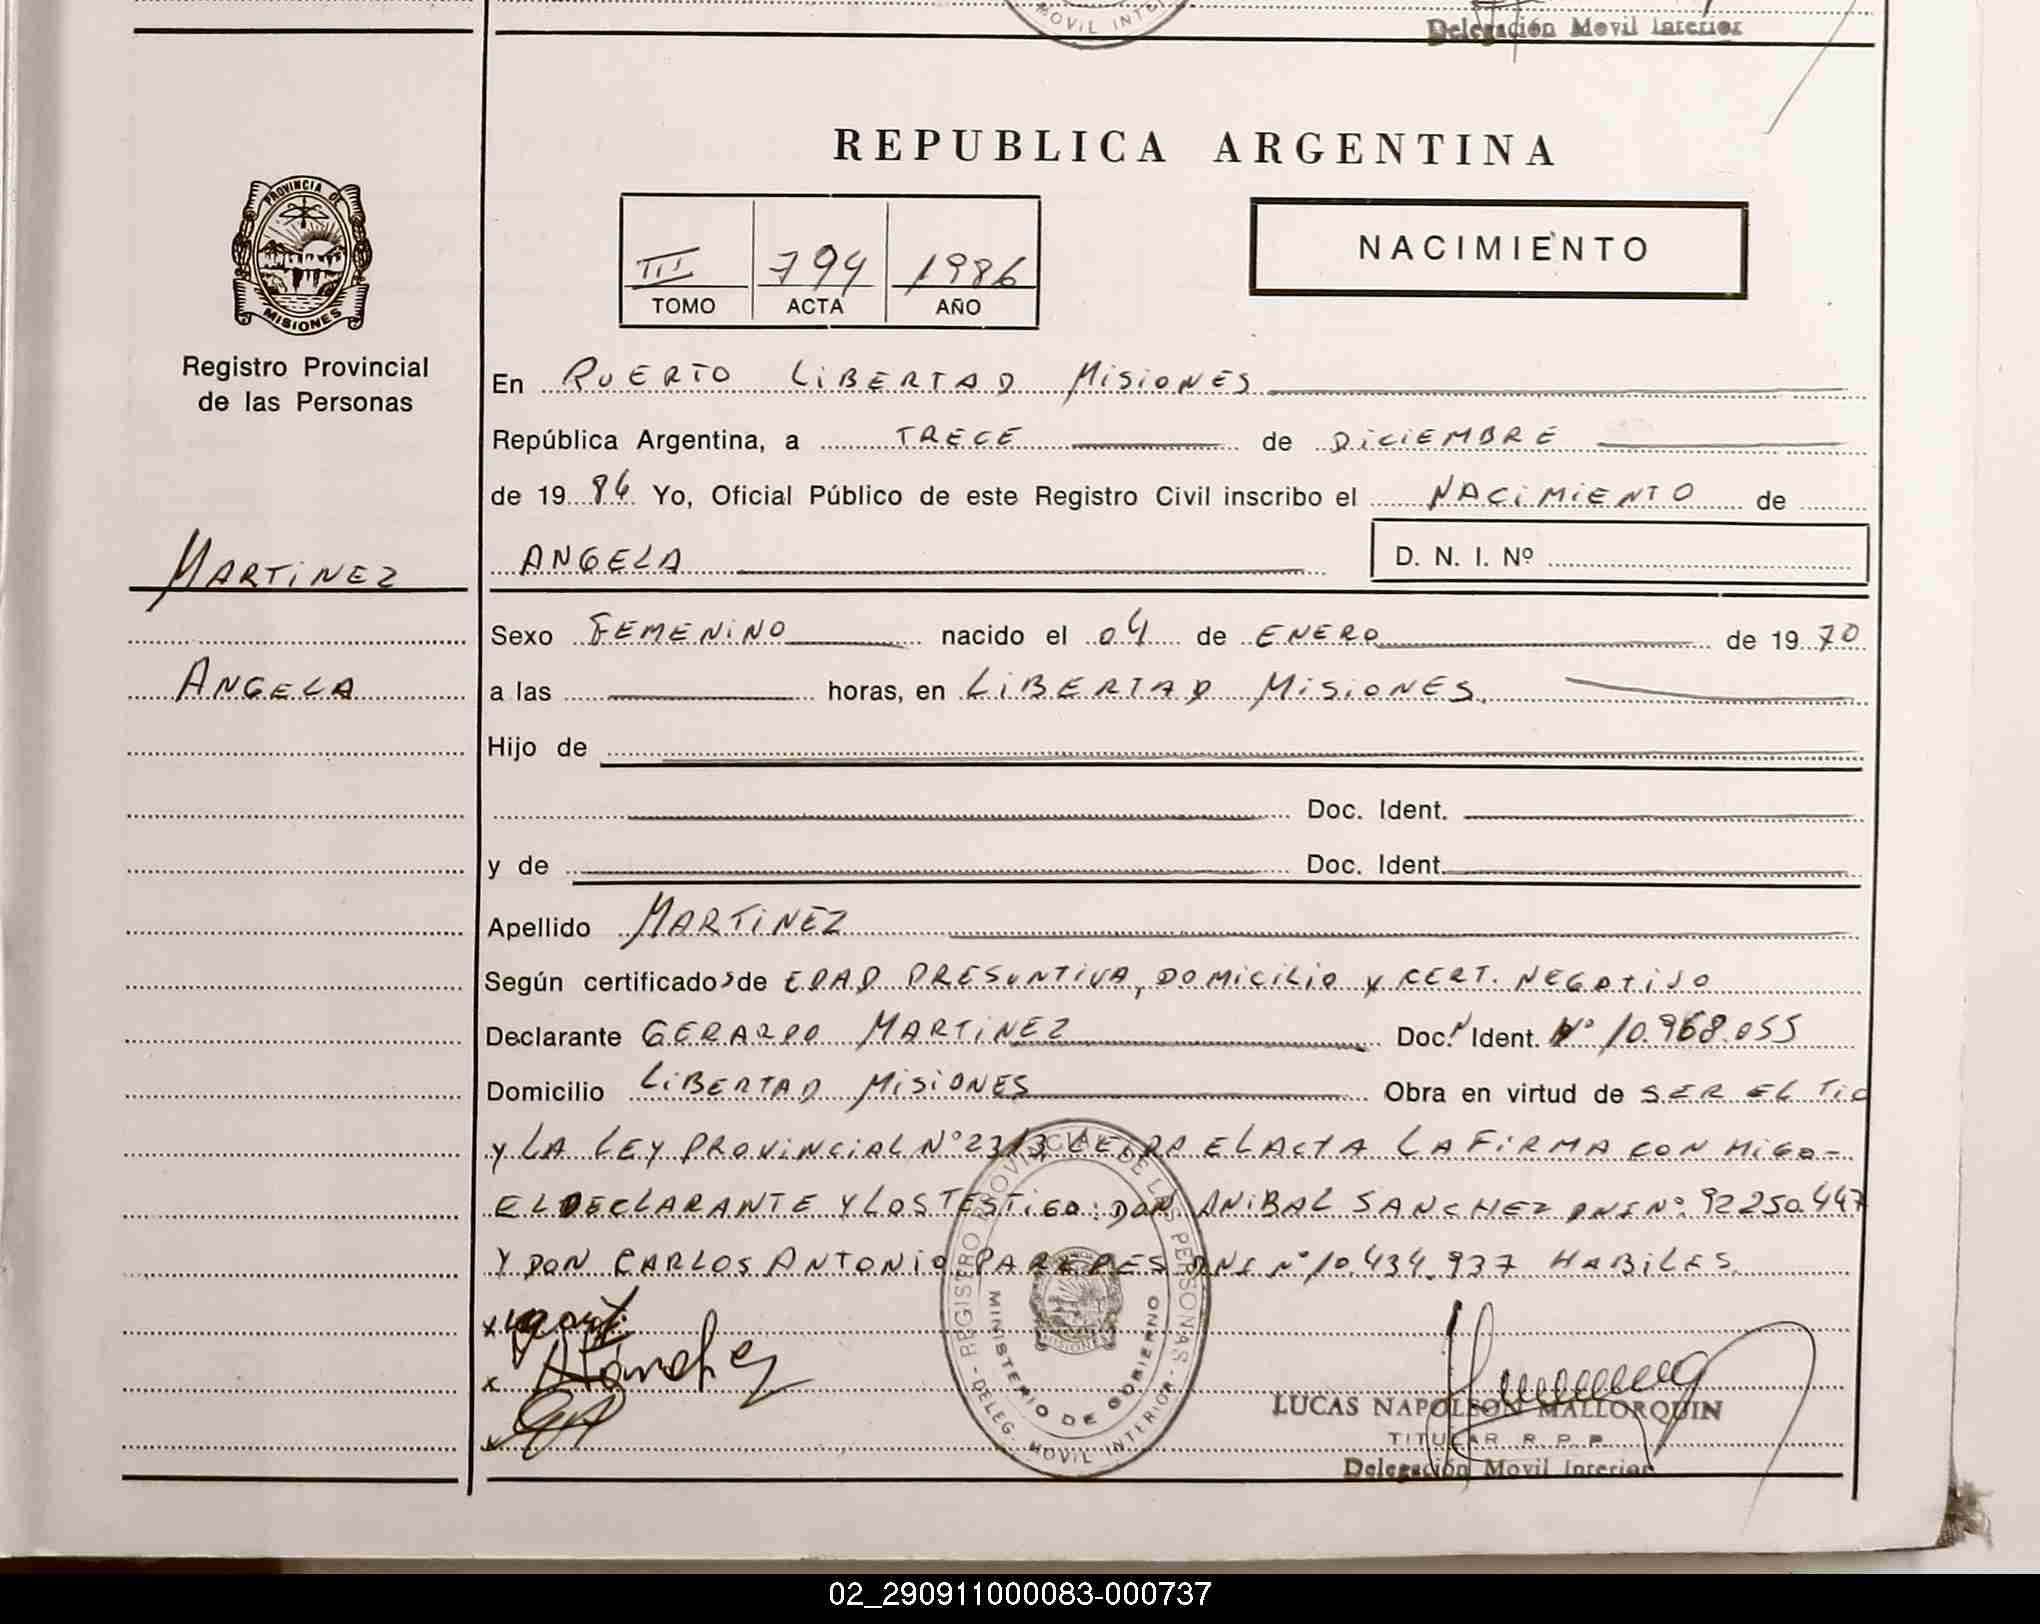 MOVIL INTE
Delegación Movil Interior
REPUBLICA ARGENTINA
PROVINCIA DE
MISIONES
Registro Provincial
de las Personas
III 794 1986
TOMO ACTA AÑO
NACIMIENTO
En PUERTO LIBERTAD MISIONES
República Argentina, a TRECE de DICIEMBRE
de 19 86 Yo, Oficial Público de este Registro Civil inscribo el NACIMIENTO de
MARTINEZ
ANGELA
D. N. I. Nº
Sexo FEMENINO nacido el 04 de ENERO de 19 70
ANGELA
a las horas, en LIBERTAD MISIONES.
Hijo de
Doc. Ident.
y de Doc. Ident.
Apellido MARTINEZ
Según certificado de EDAD PRESUNTIVA, DOMICILIO Y CERT. NEGATIVO
Declarante GERARDO MARTINEZ Doc. Ident. Nº 10.968.055
Domicilio LIBERTAD MISIONES Obra en virtud de SER EL TIO
Y LA LEY PROVINCIAL Nº 2313 LEIDA EL ACTA LA FIRMA CON MIGO-
EL DECLARANTE Y LOS TESTIGO: DON ANIBAL SANCHEZ DNI Nº 92250.447
Y DON CARLOS ANTONIO PAREDES DNI Nº 10.434.937 HABILES
REGISTRO PROVINCIAL DE LAS PERSONAS - DELEG. MOVIL INTERIOR -
MINISTERIO DE GOBIERNO
MISIONES
x
x ASanchez
x
LUCAS NAPOLEON MALLORQUIN
TITULAR R. P. P.
Delegación Movil Interior
02_290911000083-000737